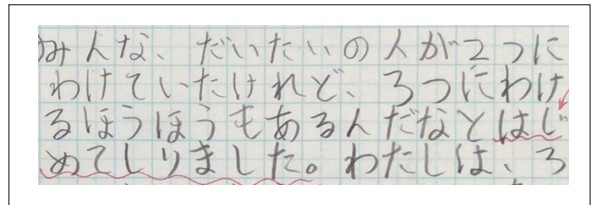 みんな、だいたいの人が2つに
わけていたけれど、3つにわけ
るほうほうもあるんだなとはじ
めてしりました。わたしは、3